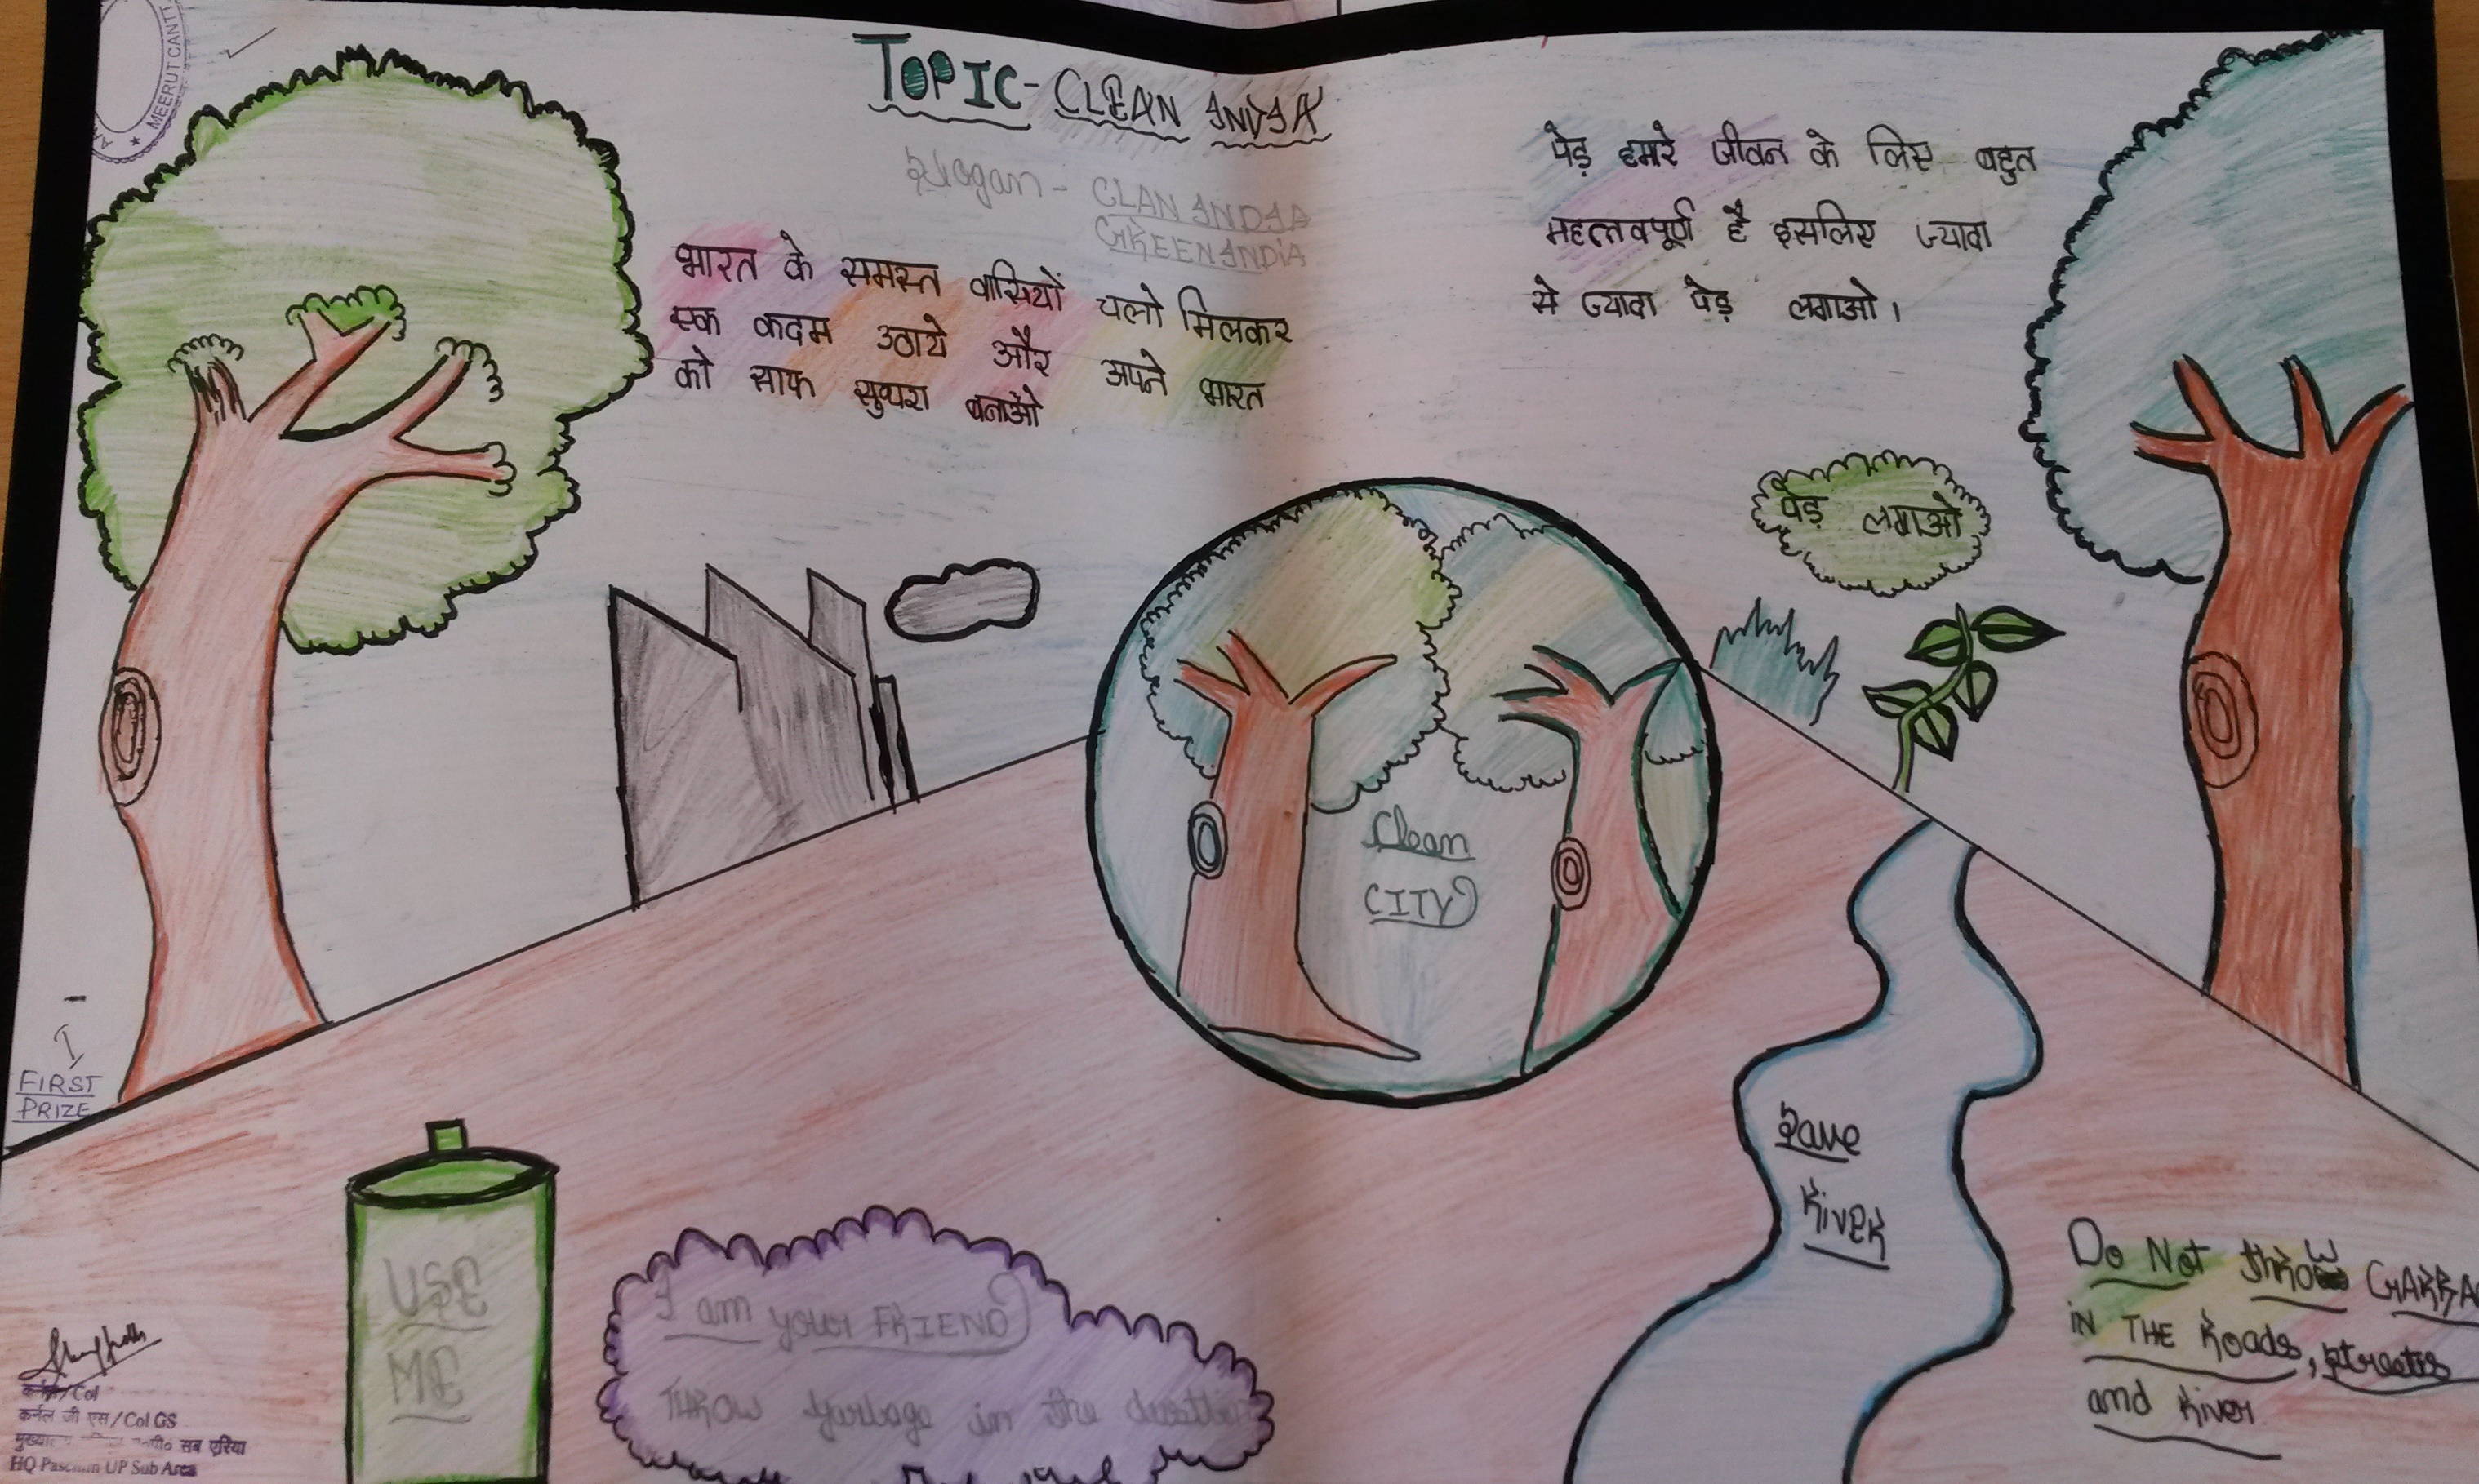 MEERUT CANTT
TOPIC- CLEAN INDIA
Slogan- CLAN INDIA
GREEN INDIA
भारत के समस्त वासियों चलो मिलकर
एक कदम उठाये और अपने भारत
को साफ सुथरा बनाओ
पेड़ हमारे जीवन के लिए बहुत
महत्तवपूर्ण है इसलिए ज्यादा
से ज्यादा पेड़ लगाओ।
पेड़ लगाओ
Clean
CITY
I
FIRST
PRIZE
USE
ME
I am your FRIEND
THROW garbage in the
Save
RIVER
Do Not throw
in THE Roads, streets
and River
कर्नल/Col
कर्नल जी एस/Col GS
सब एरिया
HQ Paschim UP Sub Area